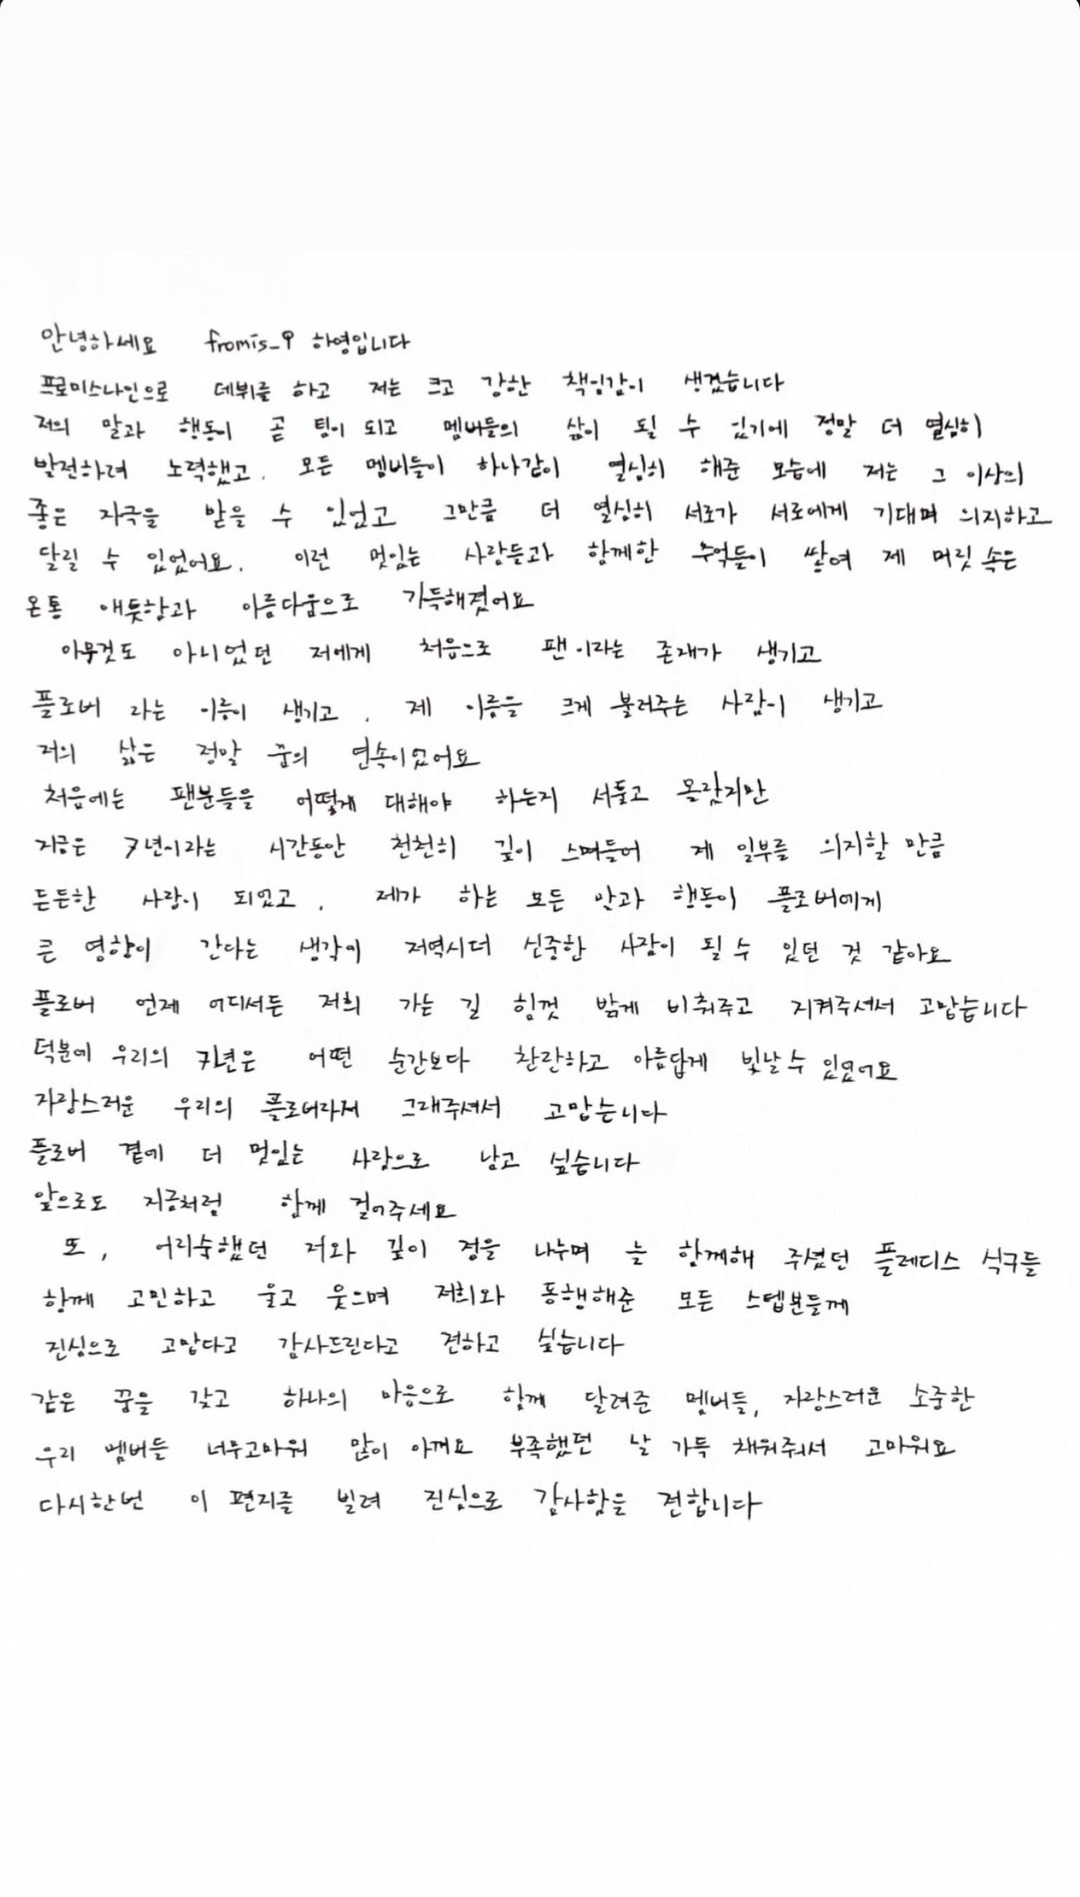 안녕하세요 fromis_9 하영입니다
프로미스나인으로 데뷔를 하고 저는 크고 강한 책임감이 생겼습니다
저의 말과 행동이 곧 팀이 되고 멤버들의 삶이 될 수 있기에 정말 더 열심히
발전하려 노력했고, 모든 멤버들이 하나같이 열심히 해준 모습에 저는 그 이상의
좋은 자극을 받을 수 있었고 그만큼 더 열심히 서로가 서로에게 기대며 의지하고
달릴 수 있었어요. 이런 멋있는 사람들과 함께한 추억들이 쌓여 제 머릿 속은
온통 애틋함과 아름다움으로 가득해졌어요
아무것도 아니었던 저에게 처음으로 팬 이라는 존재가 생기고
플로버 라는 이름이 생기고, 제 이름을 크게 불러주는 사람이 생기고
저의 삶은 정말 꿈의 연속이었어요
처음에는 팬분들을 어떻게 대해야 하는지 서툴고 몰랐지만
지금은 7년이라는 시간동안 천천히 깊이 스며들어 제 일부를 의지할 만큼
든든한 사랑이 되었고, 제가 하는 모든 말과 행동이 플로버에게
큰 영향이 간다는 생각에 저역시더 신중한 사람이 될 수 있던 것 같아요
플로버 언제 어디서든 저희 가는 길 힘껏 밝게 비춰주고 지켜주셔서 고맙습니다
덕분에 우리의 7년은 어떤 순간보다 찬란하고 아름답게 빛날 수 있었어요
자랑스러운 우리의 플로버라서 그래주셔서 고맙습니다
플로버 곁에 더 멋있는 사람으로 남고 싶습니다
앞으로도 지금처럼 함께 걸어주세요
또, 어리숙했던 저와 깊이 정을 나누며 늘 함께해 주셨던 플레디스 식구들
함께 고민하고 울고 웃으며 저희와 동행해준 모든 스텝분들께
진심으로 고맙다고 감사드린다고 전하고 싶습니다
같은 꿈을 갖고 하나의 마음으로 함께 달려준 멤버들, 자랑스러운 소중한
우리 멤버들 너무고마워 많이 아껴요 부족했던 날 가득 채워줘서 고마워요
다시한번 이 편지를 빌려 진심으로 감사함을 전합니다